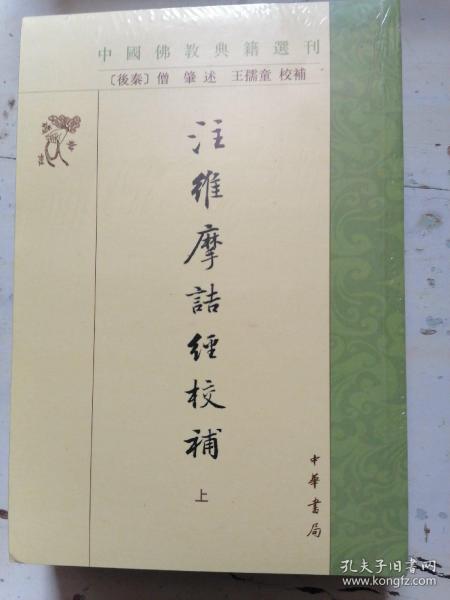 中國佛教典籍選刊
〔後秦〕僧 肇 述 王孺童 校補
注維摩詰經校補
上
中華書局
孔夫子旧书网
www.kongfz.com